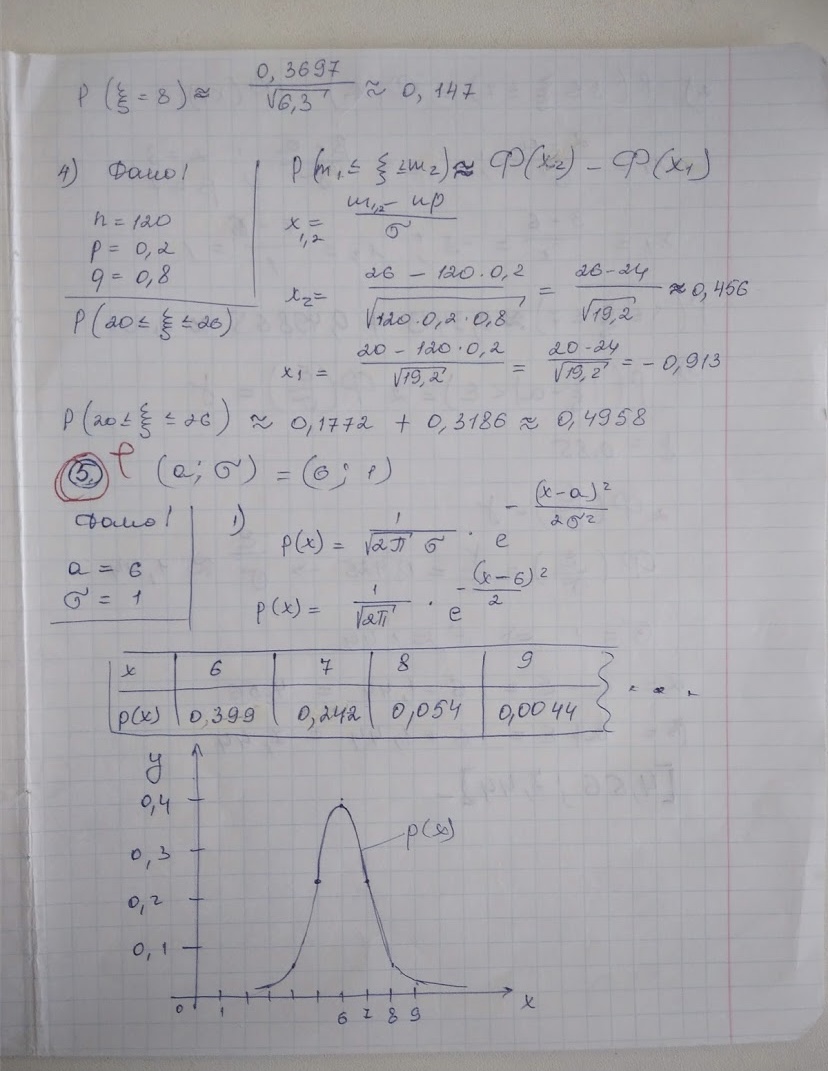 P(ξ = 8) ≈ 0,3697 / √6,3 ≈ 0,147
4) Дано! P(m₁ ≤ ξ ≤ m₂) ≈ Ф(x₂) − Ф(x₁)
n = 120
x₁,₂ = (m₁,₂ − np) / σ
p = 0,2
q = 0,8
x₂ = (26 − 120·0,2) / √120·0,2·0,8 = (26−24) / √19,2 ≈ 0,456
P(20 ≤ ξ ≤ 26)
x₁ = (20 − 120·0,2) / √19,2 = (20−24) / √19,2 = −0,913
P(20 ≤ ξ ≤ 26) ≈ 0,1772 + 0,3186 ≈ 0,4958
5. (a; σ) = (6; 1)
Дано!
a = 6
σ = 1
1) p(x) = 1 / √2π σ · e^−(x−a)² / 2σ²
p(x) = 1 / √2π · e^−(x−6)² / 2
x 6 7 8 9
p(x) 0,399 0,242 0,054 0,0044 ...
y
0,4
0,3 p(x)
0,2
0,1
0 1 6 7 8 9 x